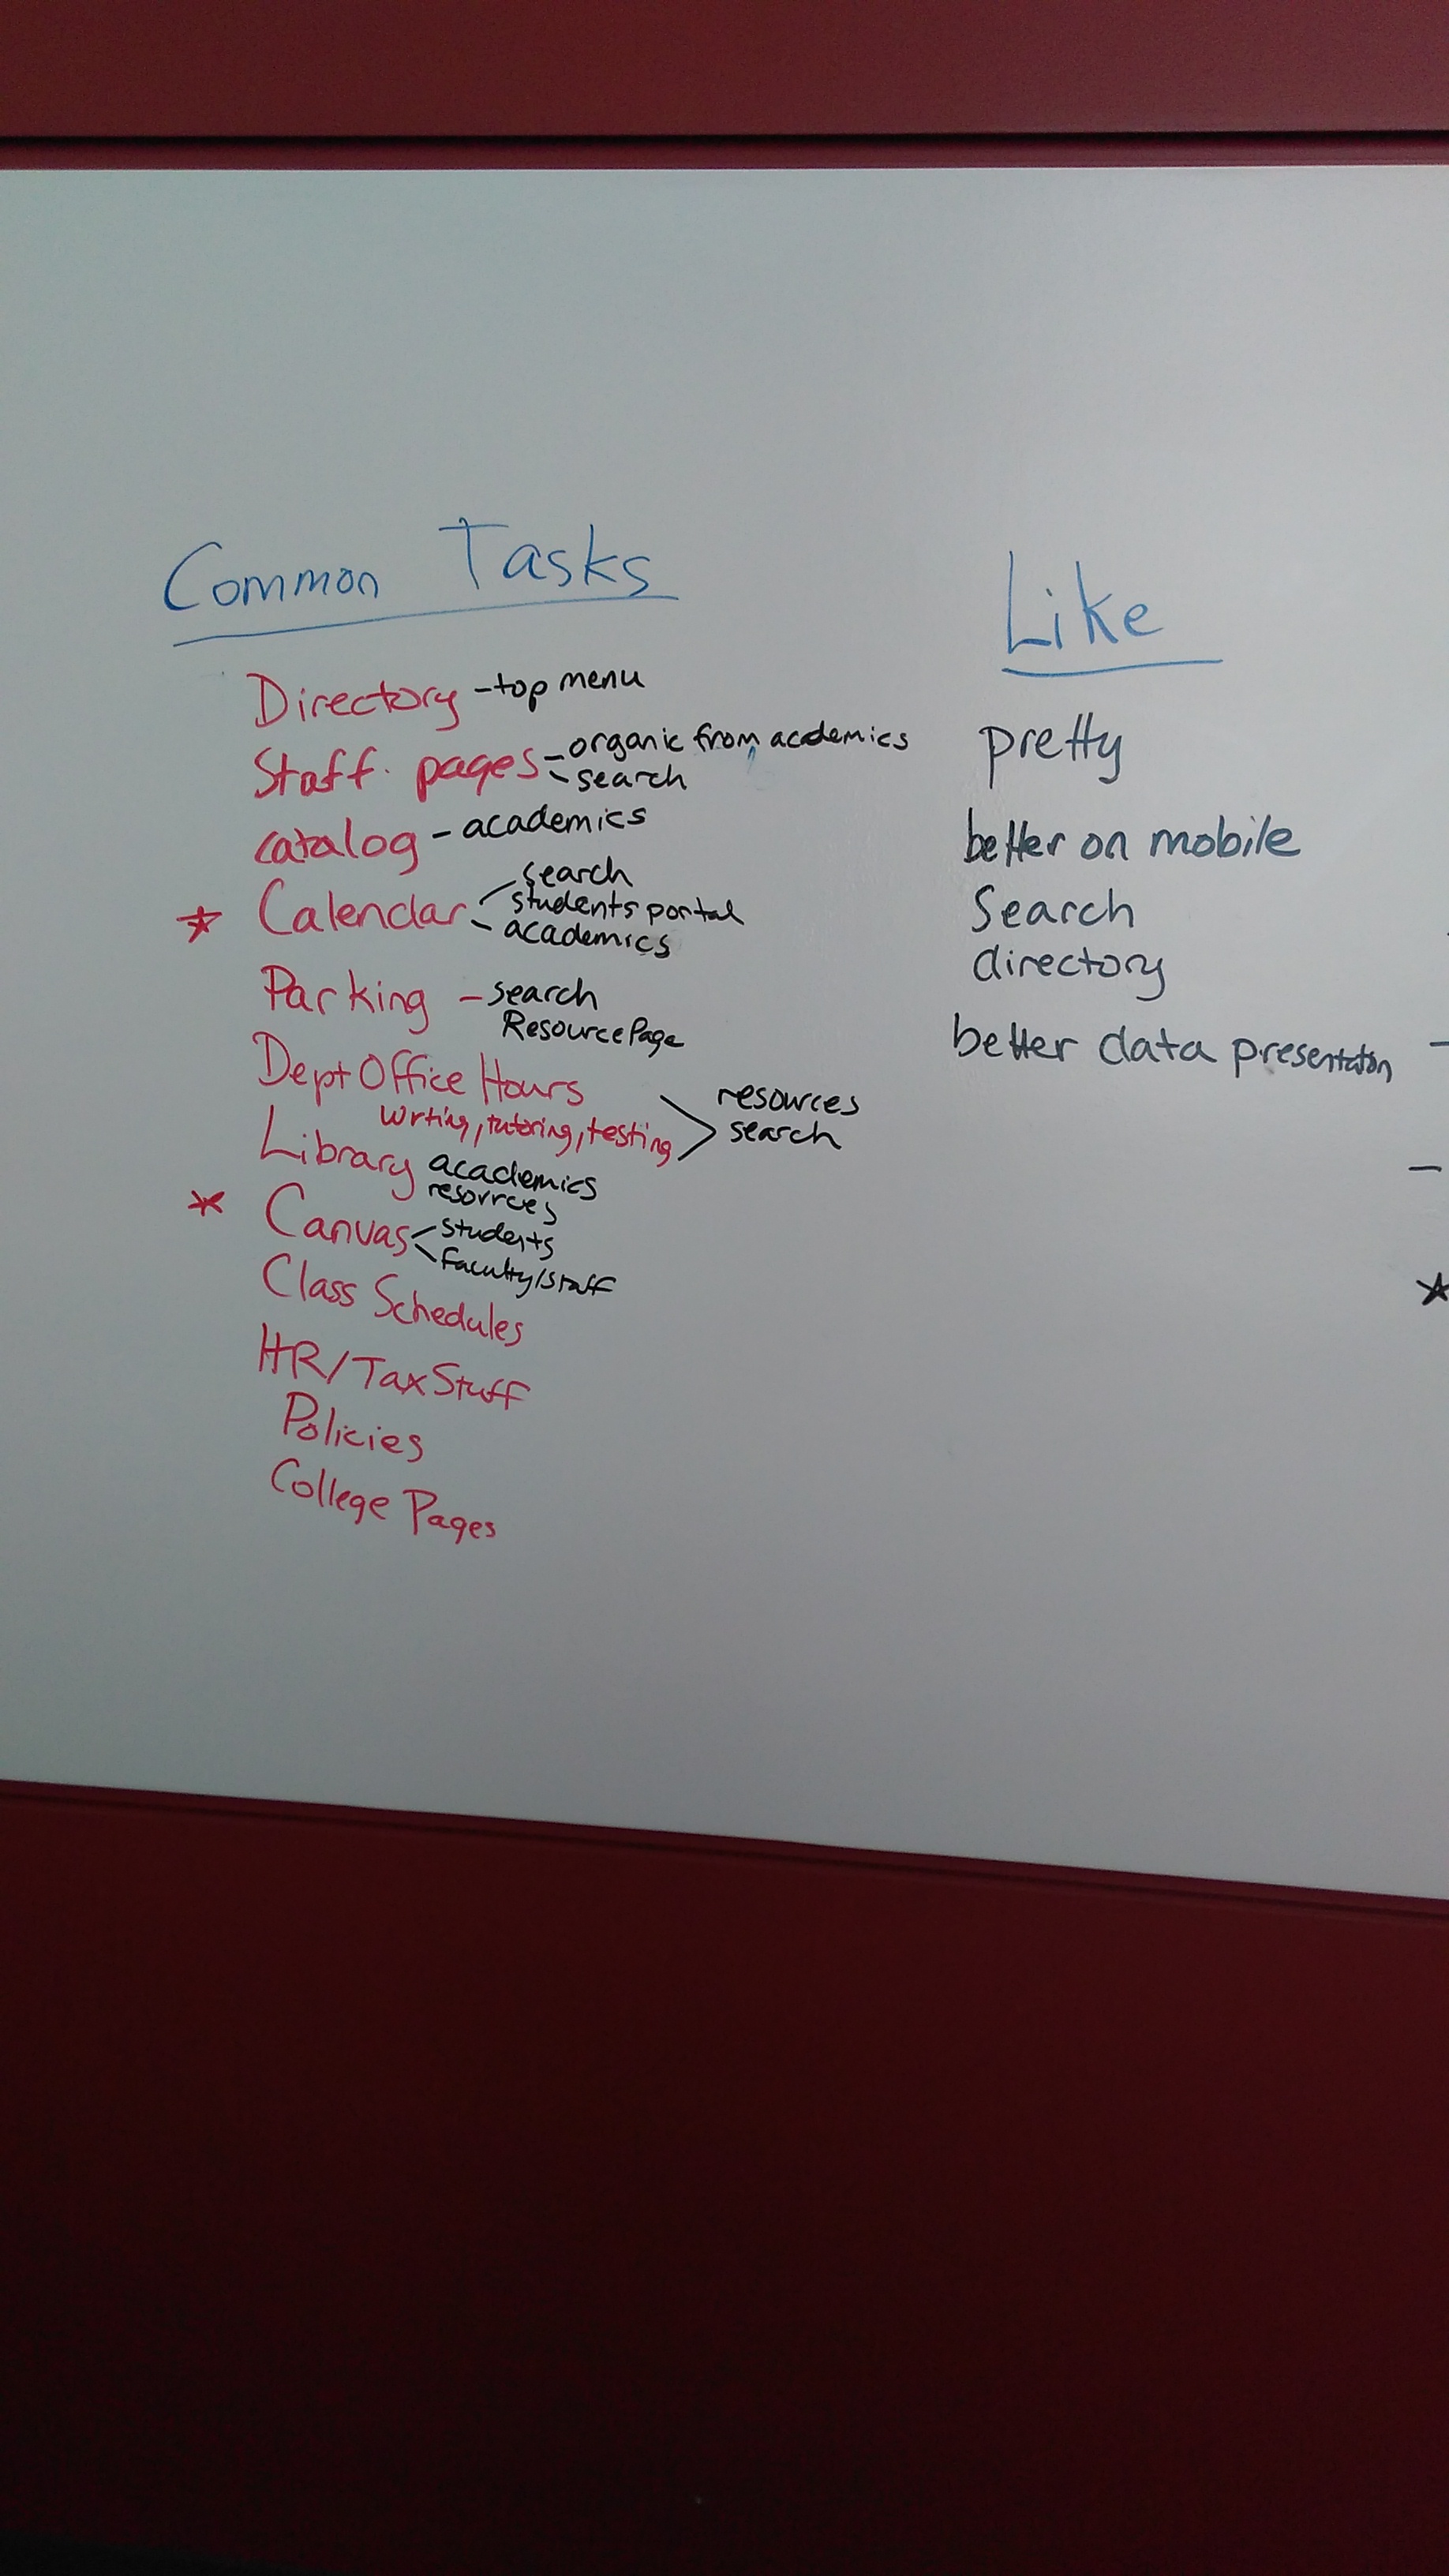 Common Tasks
Directory - top menu
Staff pages - organic from academics
- search
catalog - academics
search
* Calendar students portal
academics
Parking - search
Resource Page
Dept Office Hours
resources
writing, tutoring, testing > search
Library academics
resources
* Canvas < students
faculty/staff
Class Schedules
HR/Tax Stuff
Policies
College Pages
Like
pretty
better on mobile
Search
directory
better data presentation